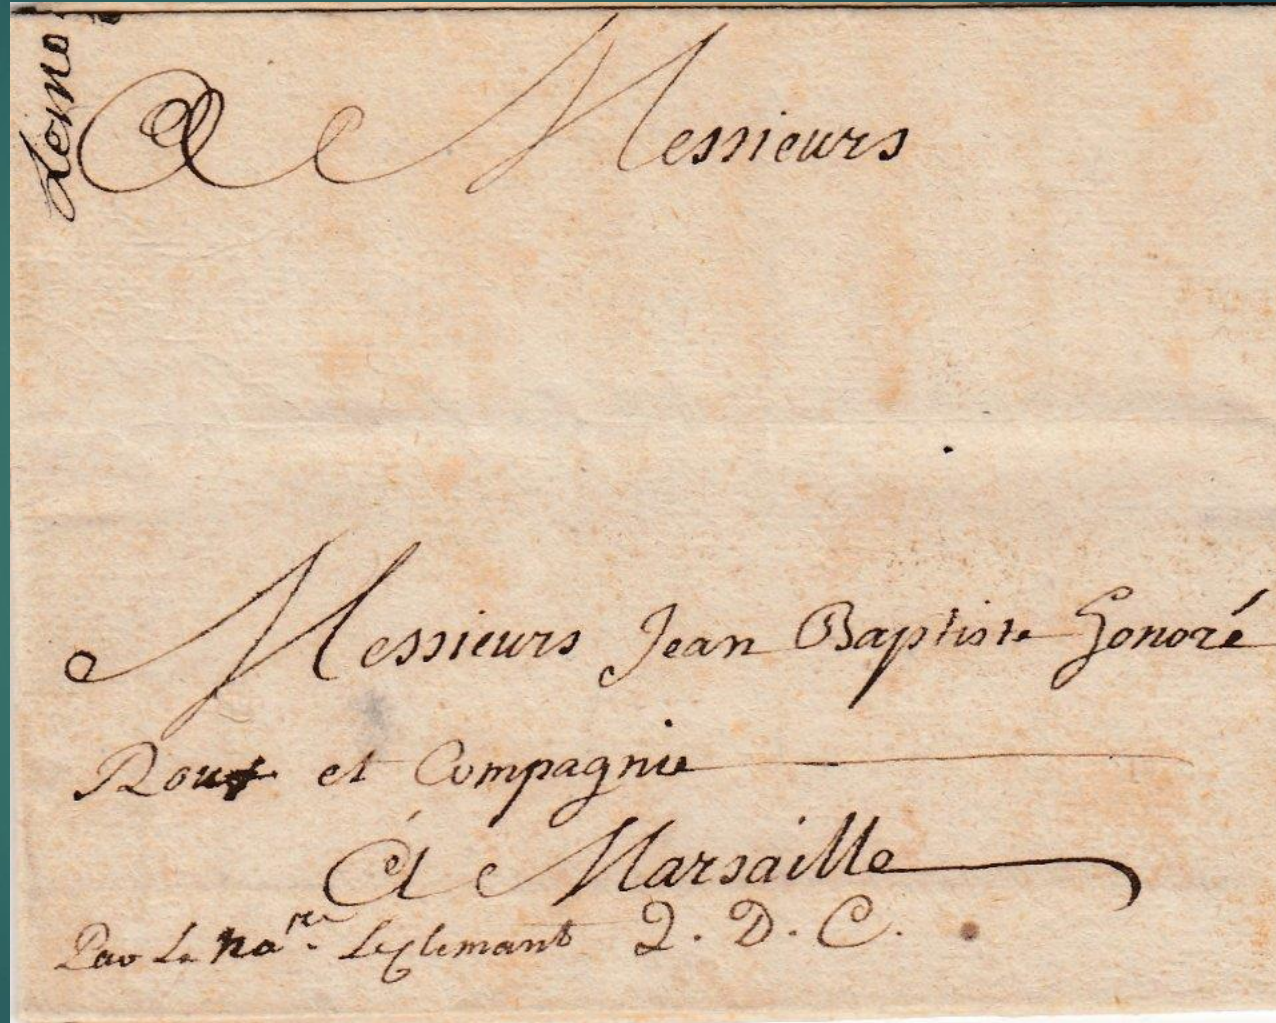 A Messieurs
Messieurs Jean Baptiste Honoré
Roux et Compagnie
A Marsaille
Par Le na.re Leclemant Q. D. C.